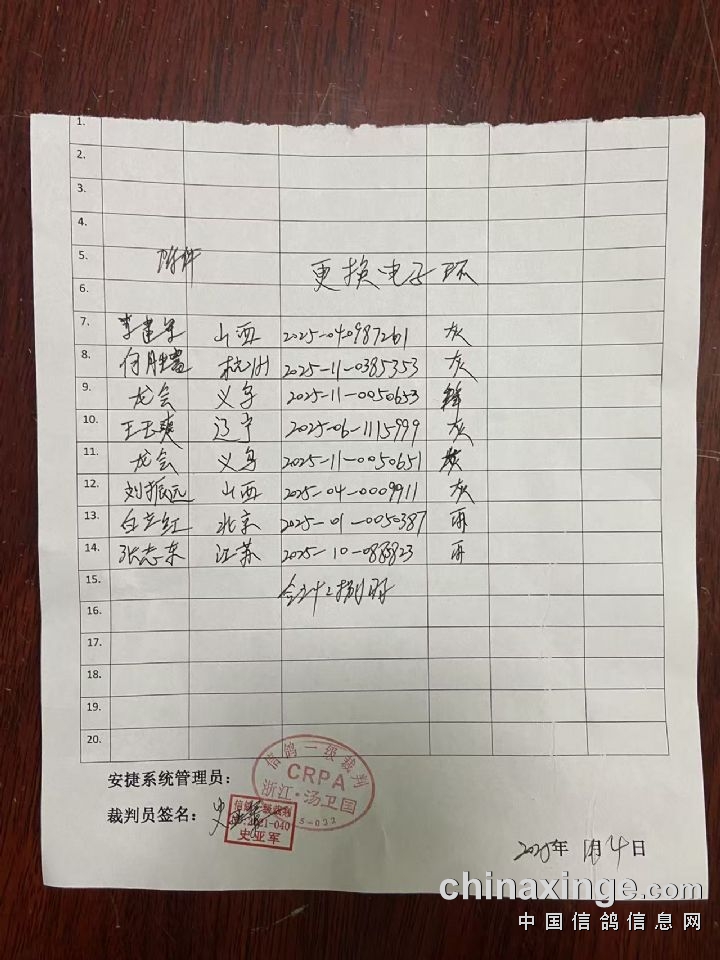 1.
2.
3.
4.
5. 附件 更换电子环
6.
7. 山西 2025-04-0987261 灰
8. 杭州 2025-11-0385353 灰
9. 龙会 义乌 2025-11-0050653
10. 王玉爽 辽宁 2025-06-1115999 灰
11. 龙会 义乌 2025-11-0050651
12. 刘振远 山西 2025-04-0009911 灰
13. 白立红 北京 2025-01-0050387 雨
14. 张志东 江苏 雨
15. 合计:捌羽
16.
17.
18.
19.
20.
安捷系统管理员:
信鸽一级裁判
CRPA
浙江·汤卫国
裁判员签名:
史亚军
年 月 4 日
chinaxinge.com
中国信鸽信息网